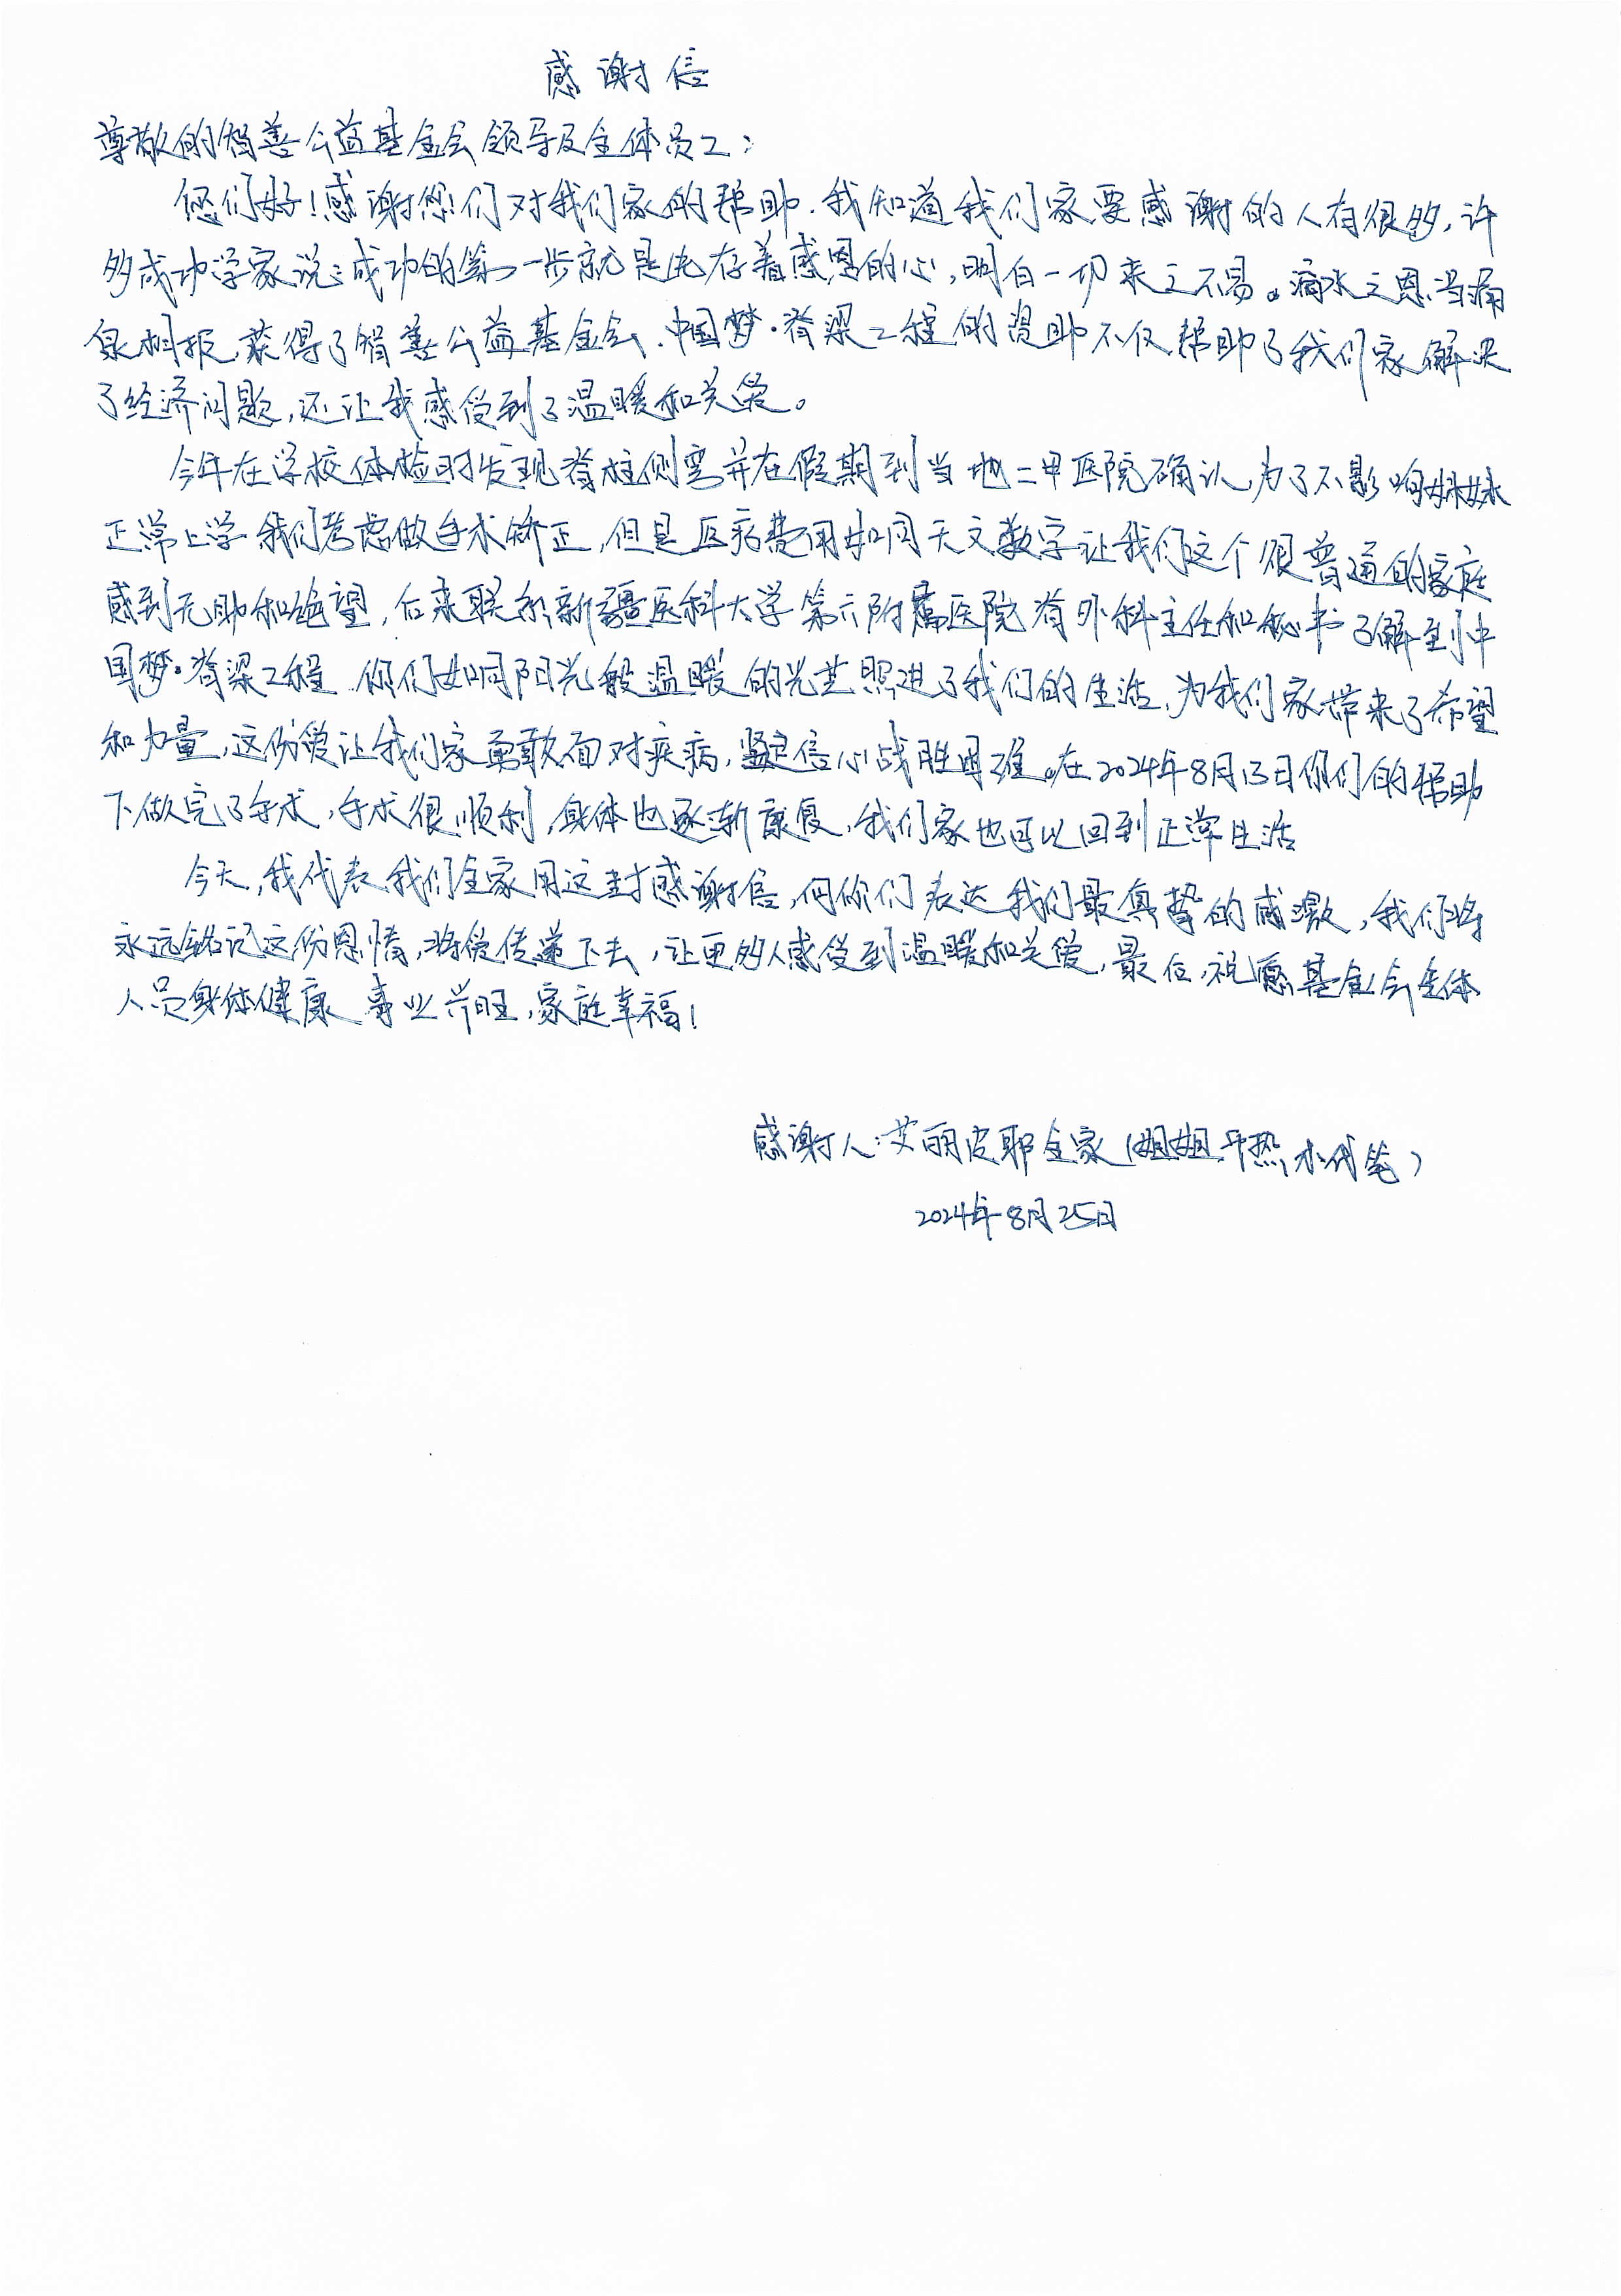 感谢信
尊敬的智善公益基金会领导及全体员工:
您们好!感谢您们对我们家的帮助.我知道我们家要感谢的人有很多,许
多成功学家说:成功的第一步就是先存着感恩的心,明白一切来之不易。滴水之恩当涌
泉相报,获得了智善公益基金会.中国梦·脊梁工程的资助不仅帮助了我们家解决
了经济问题,还让我感受到了温暖和关爱。
今年在学校体检时发现脊柱侧弯并在假期到当地二甲医院确认,为了不影响妹妹
正常上学我们考虑做手术矫正,但是医病费用如同天文数字让我们这个很普通的家庭
感到无助和绝望,后来联系新疆医科大学第六附属医院脊外科主任和秘书了解到中
国梦·脊梁工程.你们如同阳光般温暖的光芒照进了我们的生活,为我们家带来了希望
和力量,这份爱让我们家勇敢面对疾病,坚定信心战胜困难。在2024年8月13日你们的帮助
下做完了手术,手术很顺利,身体也逐渐康复,我们家也可以回到正常生活
今天,我代表我们全家用这封感谢信,向你们表达我们最真挚的感激,我们将
永远铭记这份恩情,将爱传递下去,让更多人感受到温暖和关爱,最后,祝愿基金会全体
人员身体健康 事业兴旺,家庭幸福!
感谢人:艾丽皮耶全家(姐姐 热 代笔)
2024年8月25日